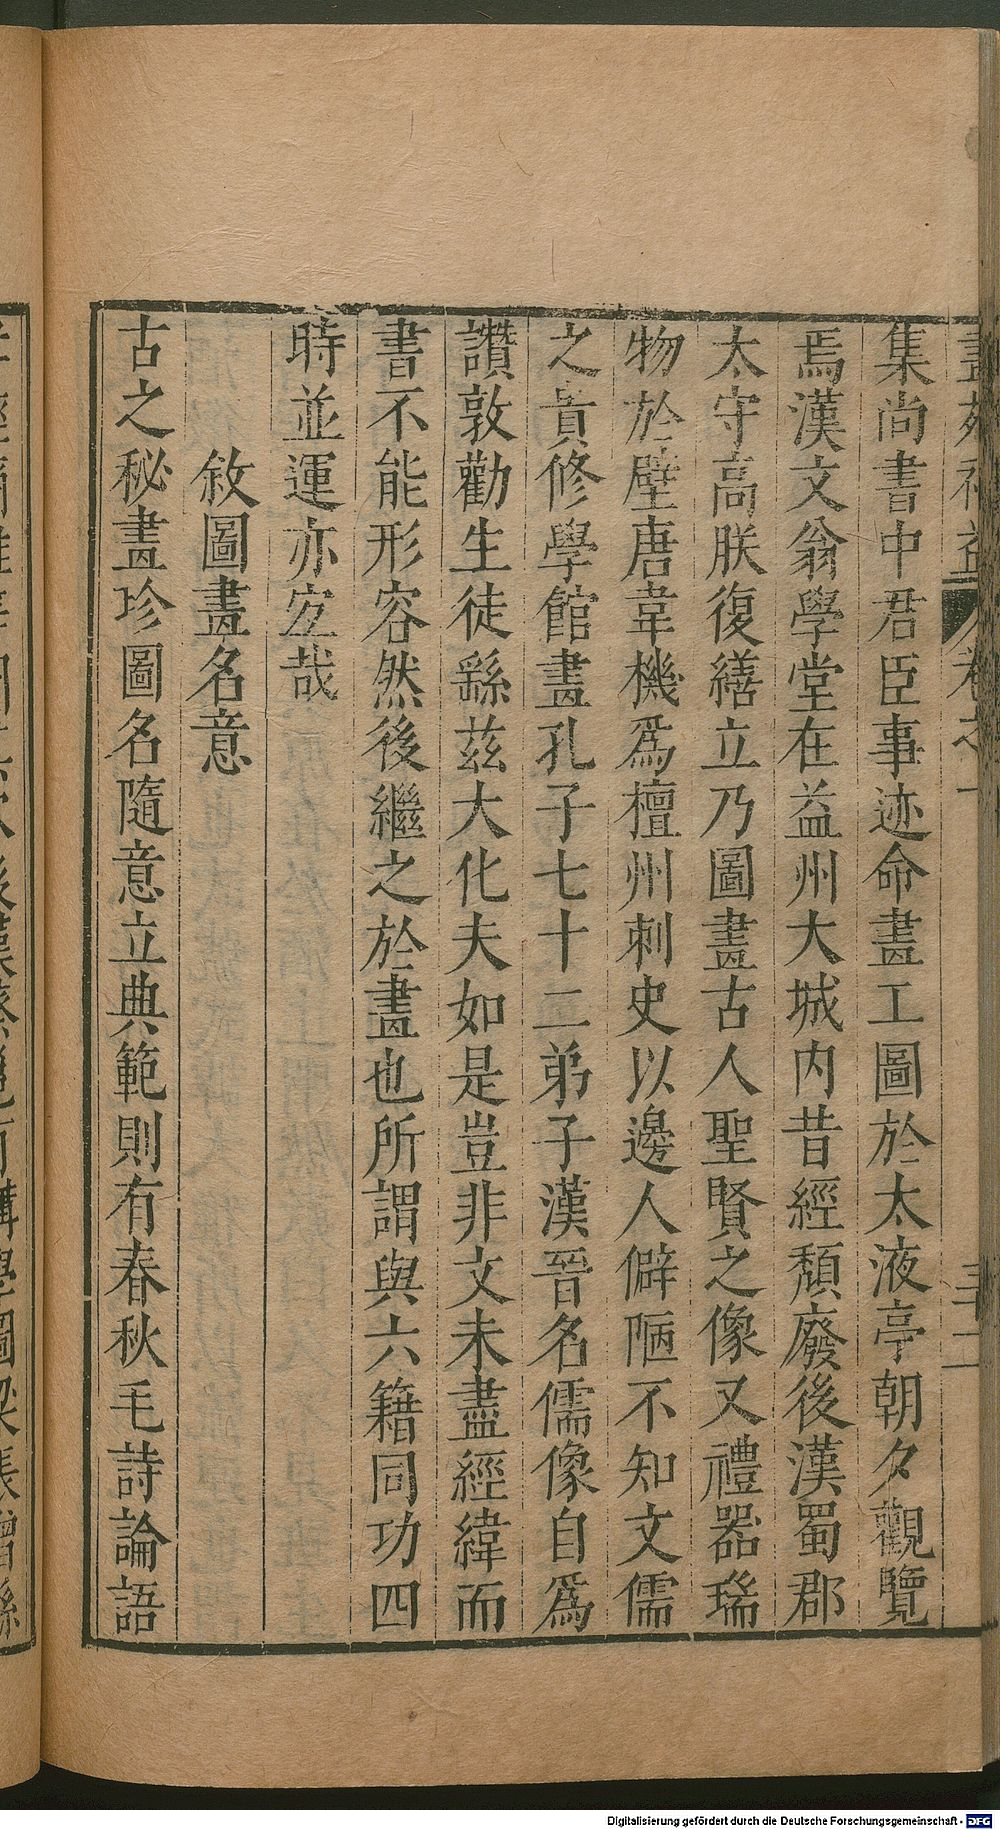 畫苑補益 卷之一 三十二
集尚書中君臣事迹命畫工圖於太液亭朝夕觀覽
焉漢文翁學堂在益州大城内昔經頹廢後漢蜀郡
太守高朕復繕立乃圖畫古人聖賢之像又禮器瑞
物於壁唐韋機爲檀州刺史以邊人僻陋不知文儒
之貴修學館畫孔子七十二弟子漢晉名儒像自爲
讚敦勸生徒繇兹大化夫如是豈非文未盡經緯而
書不能形容然後繼之於畫也所謂與六籍同功四
時並運亦宐哉
敘圖畫名意
古之秘畫珍圖名隨意立典範則有春秋毛詩論語
Digitalisierung gefördert durch die Deutsche Forschungsgemeinschaft - DFG